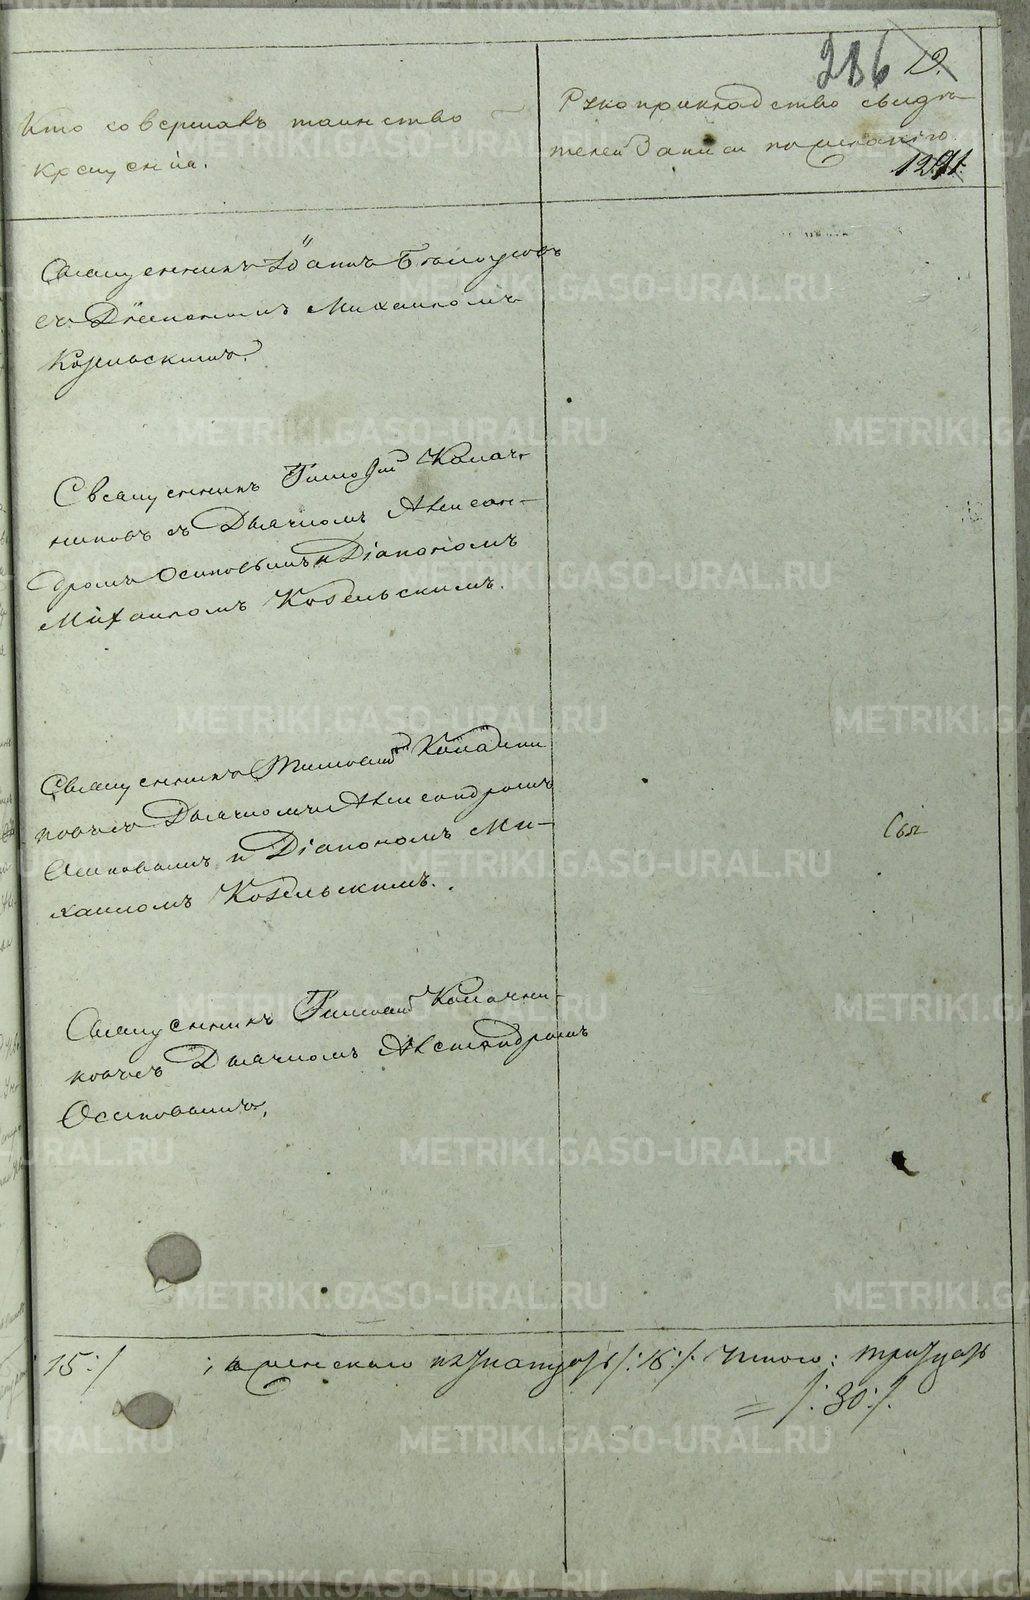 286 12.
Кто совершалъ таинство
крещенія.
Рукоприкладство свидѣ-
телей записи по желанію.
1291.
Священникъ Іоаннъ Бѣлоусовъ
съ Діакономъ Михаиломъ
Козельскимъ.
Священникъ Тимоѳей Калач-
никовъ съ Дьячкомъ Алексан-
дромъ Осиповымъ и Діакономъ
Михаиломъ Козельскимъ.
Священникъ Тимоѳей
ковъ съ Дьячкомъ Александромъ
Осиповымъ и Діакономъ Ми-
хаиломъ Козельскимъ.
Священникъ Тимоѳей Калачни-
ковъ съ Дьячкомъ Александромъ
Осиповымъ,
15:/ женскаго пятнадцать /:15:/. Итого: тридцать
= /:30:/.
METRIKI.GASO-URAL.RU